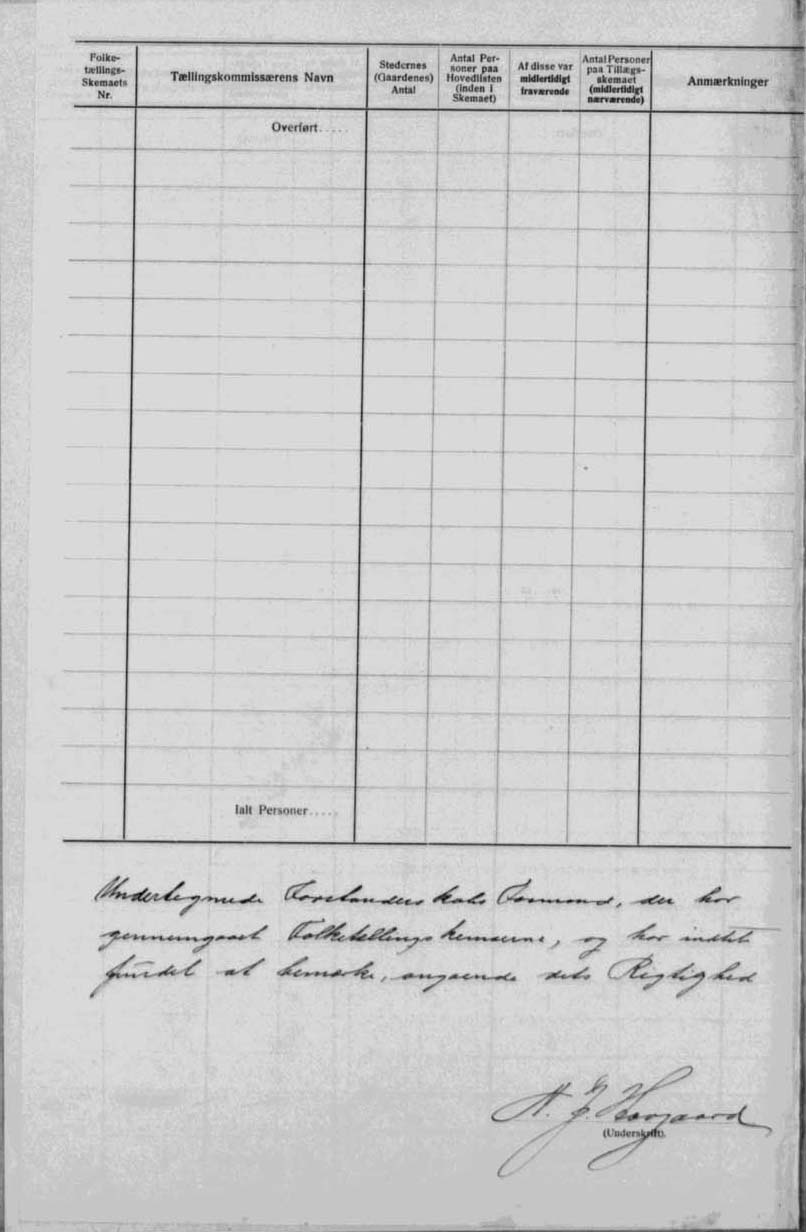 Folke-
tællings-
Skemaets
Nr.
Tællingskommissærens Navn
Stedernes
(Gaardenes)
Antal
Antal Per-
soner paa
Hovedlisten
(inden i
Skemaet)
Af disse var
midlertidigt
fraværende
Antal Personer
paa Tillægs-
skemaet
(midlertidigt
nærværende)
Anmærkninger
Overført.....
Ialt Personer.....
Undertegnede Forstanderskabs Formand, der har
gennemgaaet Folketellingskemaerne, og har indtet
fundet at bemærke, angaaende dets Rigtighed
(Underskrift).